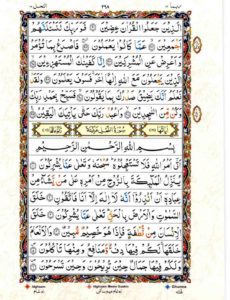 النحل ١٦
ربما ١٤
الَّذِيْنَ جَعَلُوا الْقُرْاٰنَ عِضِيْنَ ۝ فَوَرَبِّكَ لَنَسْـَٔلَنَّهُمْ
اَجْمَعِيْنَ ۝ عَمَّا كَانُوْا يَعْمَلُوْنَ ۝ فَاصْدَعْ بِمَا تُؤْمَرُ
وَاَعْرِضْ عَنِ الْمُشْرِكِيْنَ ۝ اِنَّا كَفَيْنٰكَ الْمُسْتَهْزِءِيْنَ ۝
الَّذِيْنَ يَجْعَلُوْنَ مَعَ اللّٰهِ اِلٰهًا اٰخَرَ فَسَوْفَ يَعْلَمُوْنَ ۝ وَلَقَدْ
نَعْلَمُ اَنَّكَ يَضِيْقُ صَدْرُكَ بِمَا يَقُوْلُوْنَ ۝ فَسَبِّحْ بِحَمْدِ رَبِّكَ
وَكُنْ مِّنَ السّٰجِدِيْنَ ۝ وَاعْبُدْ رَبَّكَ حَتّٰى يَاْتِيَكَ الْيَقِيْنُ ۝
سُوْرَةُ النَّحْلِ مَكِّيَّةٌ
بِسْمِ اللّٰهِ الرَّحْمٰنِ الرَّحِيْمِ
اَتٰٓى اَمْرُ اللّٰهِ فَلَا تَسْتَعْجِلُوْهُ سُبْحٰنَهٗ وَتَعٰلٰى عَمَّا يُشْرِكُوْنَ ۝
يُنَزِّلُ الْمَلٰٓئِكَةَ بِالرُّوْحِ مِنْ اَمْرِهٖ عَلٰى مَنْ يَّشَآءُ مِنْ
عِبَادِهٖٓ اَنْ اَنْذِرُوْٓا اَنَّهٗ لَآ اِلٰهَ اِلَّآ اَنَا فَاتَّقُوْنِ ۝ خَلَقَ
السَّمٰوٰتِ وَالْاَرْضَ بِالْحَقِّ تَعٰلٰى عَمَّا يُشْرِكُوْنَ ۝ خَلَقَ
الْاِنْسَانَ مِنْ نُّطْفَةٍ فَاِذَا هُوَ خَصِيْمٌ مُّبِيْنٌ ۝ وَالْاَنْعَامَ
خَلَقَهَا لَكُمْ فِيْهَا دِفْءٌ وَّمَنَافِعُ وَمِنْهَا تَاْكُلُوْنَ ۝
وَلَكُمْ فِيْهَا جَمَالٌ حِيْنَ تُرِيْحُوْنَ وَحِيْنَ تَسْرَحُوْنَ ۝